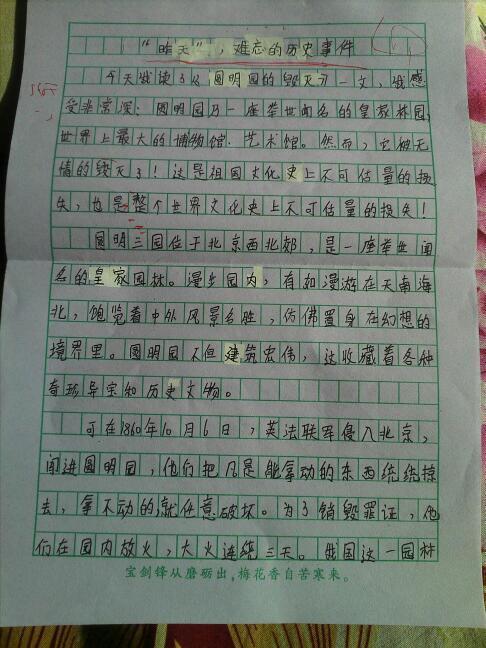 “昨天”，难忘的历史事件
今天我读了《圆明园的毁灭》一文，我感
受非常深：圆明园乃一座举世闻名的皇家林园，
世界上最大的博物馆、艺术馆。然而，它被无
情的毁灭了！这是祖国文化史上不可估量的损
失，也是整个世界文化史上不可估量的损失！
圆明三园位于北京西北郊，是一座举世闻
名的皇家园林。漫步园内，有如漫游在天南海
北，饱览着中外风景名胜，仿佛置身在幻想的
境界里。圆明园不但建筑宏伟，还收藏着各种
奇珍异宝和历史文物。
可在1860年10月6日，英法联军侵入北京，
闯进圆明园，他们把凡是能拿动的东西统统掠
去，拿不动的就任意破坏。为了销毁罪证，他
们在园内放火，大火连续三天。我国这一园林
宝剑锋从磨砺出，梅花香自苦寒来。